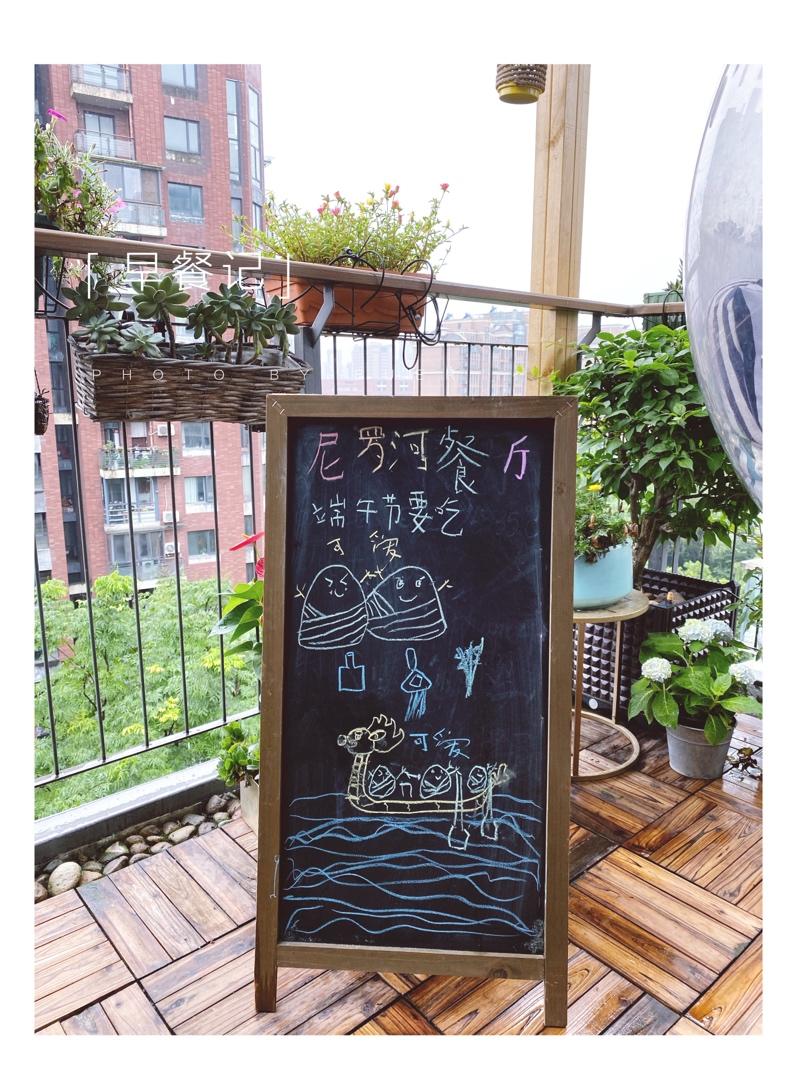 [ 早餐记 ]
PHOTO BY
尼罗河餐厅
端午节要吃
可爱
可爱